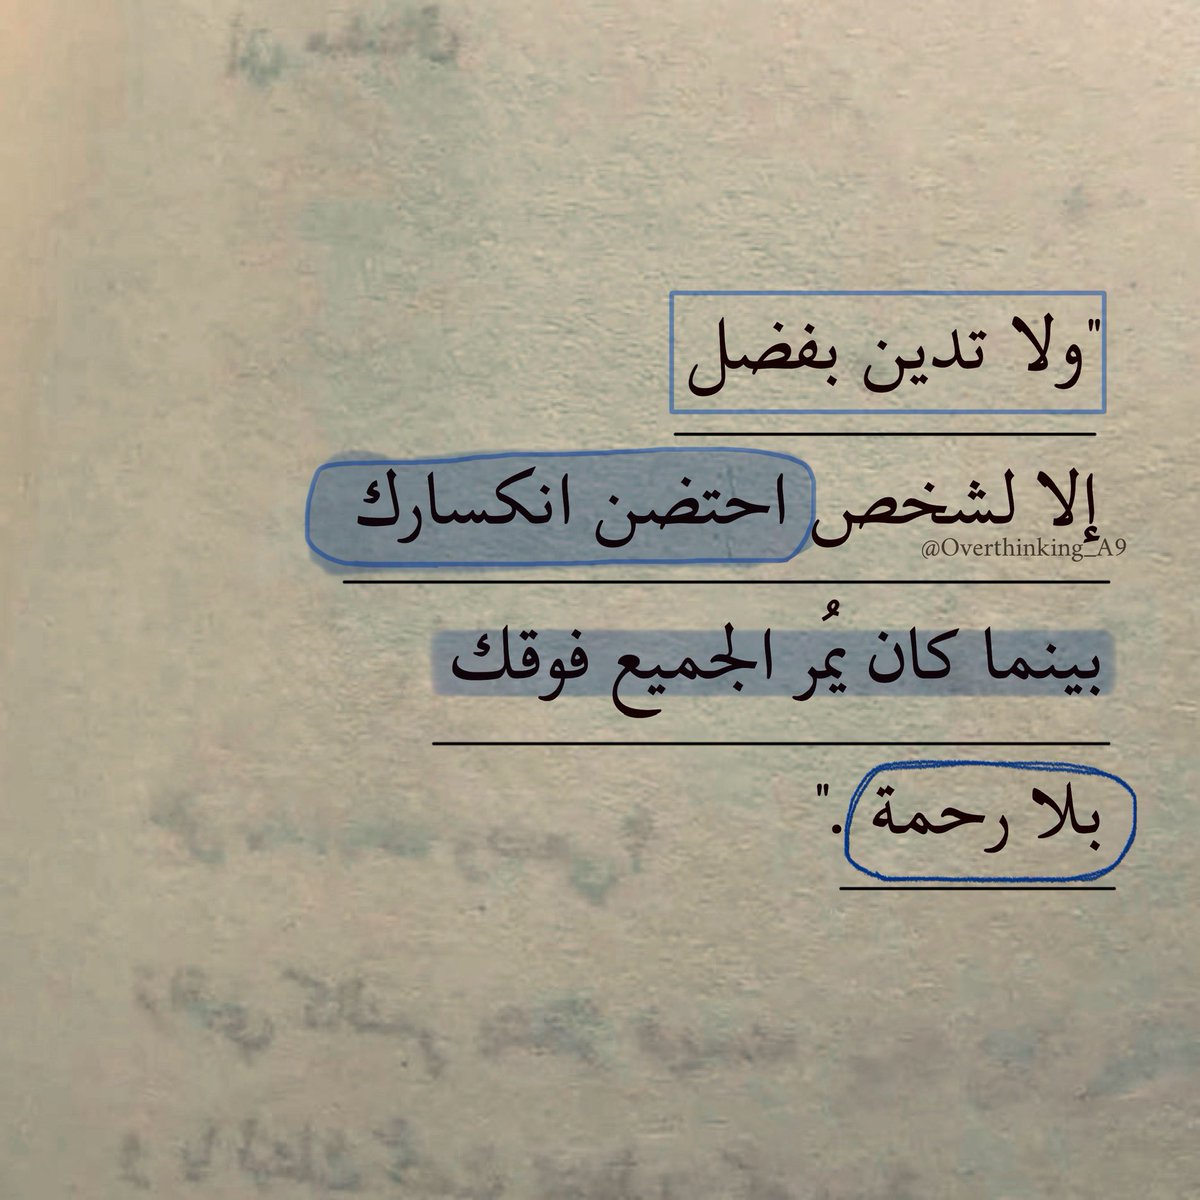 "ولا تدين بفضل
إلا لشخص احتضن انكسارك
@Overthinking_A9
بينما كان يُمر الجميع فوقك
بلا رحمة ."